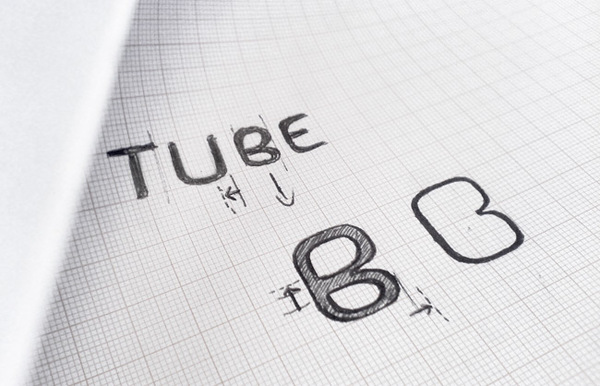 TUBE
B B